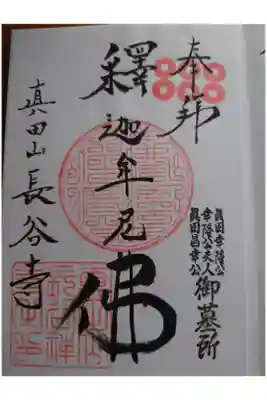 奉拝
釋迦牟尼佛
真田山長谷寺
真田幸隆公
幸隆公夫人
真田昌幸公
御墓所